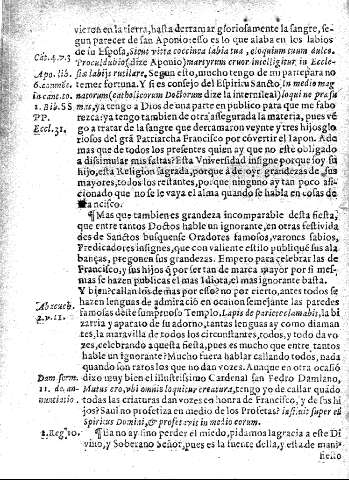 vieron en la tierra, hasta derramar gloriosamente la sangre, se-
gun parecer de san Aponio: esso es lo que alaba en los labios
de su Esposa, Sicut vitta coccinea labia tua, eloquium tuum dulce.
Cãt. 4. v. 3
Procul dubio (dize Aponio) martyrum cruor intelligitur, in Eccle-
Apo. lib.
siæ labijs rutilare. Segun esto, mucho tengo de mi parte para no
6. comẽt.
temer fortuna. Y si es consejo del Espiritu Sancto, in medio mag
in cant. 10.
natorum (carbuncorum Doctorum dize la interlineal) loqui ne præsu
1. Bib. SS
mas, ya tengo a Dios de una parte en publico para que me fabo
PP.
rezca: ya tengo tambien de otra assegurada la materia, pues vẽ-
Eccl. 31.
go a tratar de la sangre que derramaron veynte y tres hijos glo-
riosos del grã Patriarcha Francisco por cõvertir el Iapon. Ade
mas que de todos los presentes quien ay que no estè obligado
a dissimular mis faltas? Esta Vniversidad insigne porque soy su
hijo, esta Religion sagrada, porque à de oyr grandezas de sus
mayores, todos los restantes, porque ninguno ay tan poco afi-
cionado que no se le vaya el alma quando se habla en cosas de
Francisco.
¶ Mas que tambien es grandeza incomparable desta fiesta,
que entre tantos Doctos hable un ignorante, en otras festivida
des de Sanctos busquense Oradores famosos, varones sabios,
Predicadores insignes, que con valiente estilo publiquẽ sus ala
banças, pregonen sus grandezas. Empero para çelebrar las de
Francisco, y sus hijos q̃ por ser tan de marca mayor por si mes-
mas se hazen publicas el mas Idiota, el mas ignorante basta.
Y bien? callan los demas por esso? no por cierto, antes todos se
hazen lenguas de admiraciõ en ocasion semejante las paredes
famosas deste sumptuoso Templo. Lapis de pariete clamabit, la bi
Abacuch.
2. v. 11.
zarria y aparato de su adorno, tantas lenguas ay como diaman
tes, la maravilla de todos los circunstantes, todos, y todo da vo
zes, celebrando aquesta fiesta, pues es mucho que entre tantos
hable un ignorante? Mucho fuera hablar callando todos, nada
quando son raros los que no dan vozes. Aunque en otra ocasiõ
dixo muy bien el illustrissimo Cardenal san Pedro Damiano,
Dam serm.
Mutus ero, ubi omnis loquitur creatura, tengo yo de callar quãdo
11. de. an-
todas las criaturas dan vozes en honra de Francisco, y de sus hi
nuntiatio.
jos? Saul no profetiza en medio de los Profetas? insiluit super eũ
Spiritus Domini, & prophetavit in medio eorum.
¶ Ea no ay sino perder el miedo, pidamos la gracia a este Di
1. Reg. 10.
vino, y Soberano Señor, pues es la fuente della, y està de mani-
fiesto